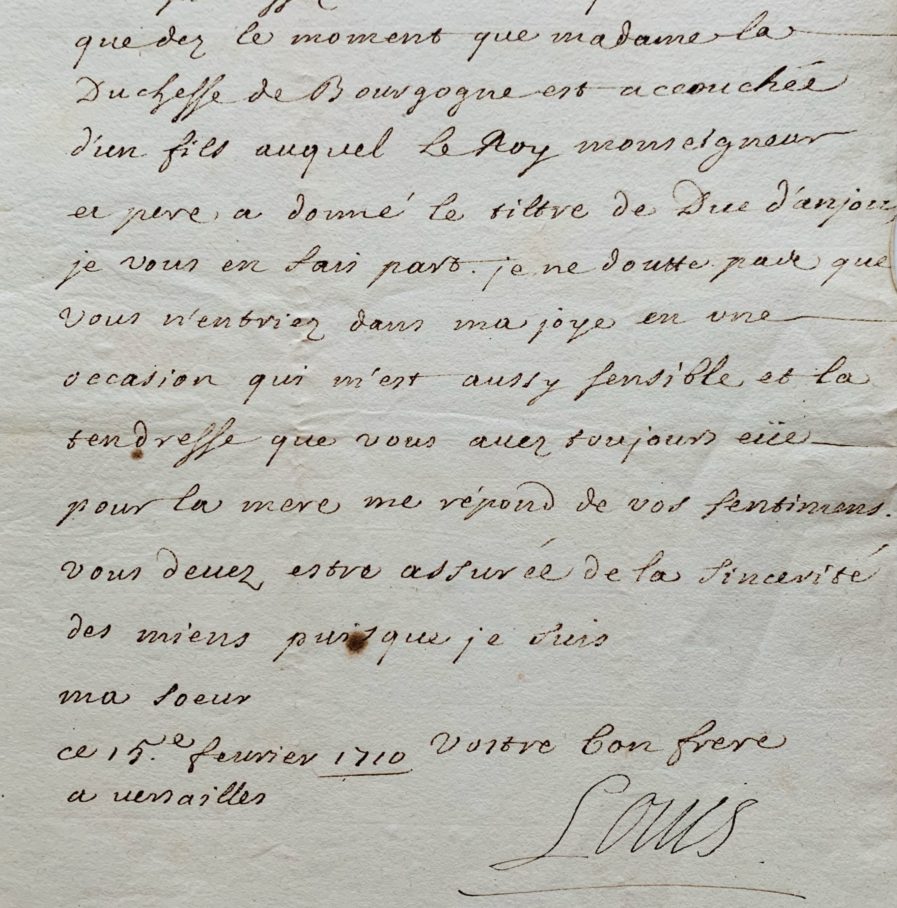 que dez le moment que madame la
Duchesse de Bourgogne est accouchée
d'un fils auquel le Roy monseigneur
et pere a donné le tiltre de Duc d'anjou,
je vous en fais part. je ne doutte pas que
vous n'entriez dans ma joye en une
occasion qui m'est aussy sensible, et la
tendresse que vous avez toujours eüe
pour la mere me répond de vos sentimens.
vous devez estre assurée de la sincerité
des miens puisque je suis
ma soeur
Vostre bon frere
ce 15.e fevrier 1710
a versailles
Louis